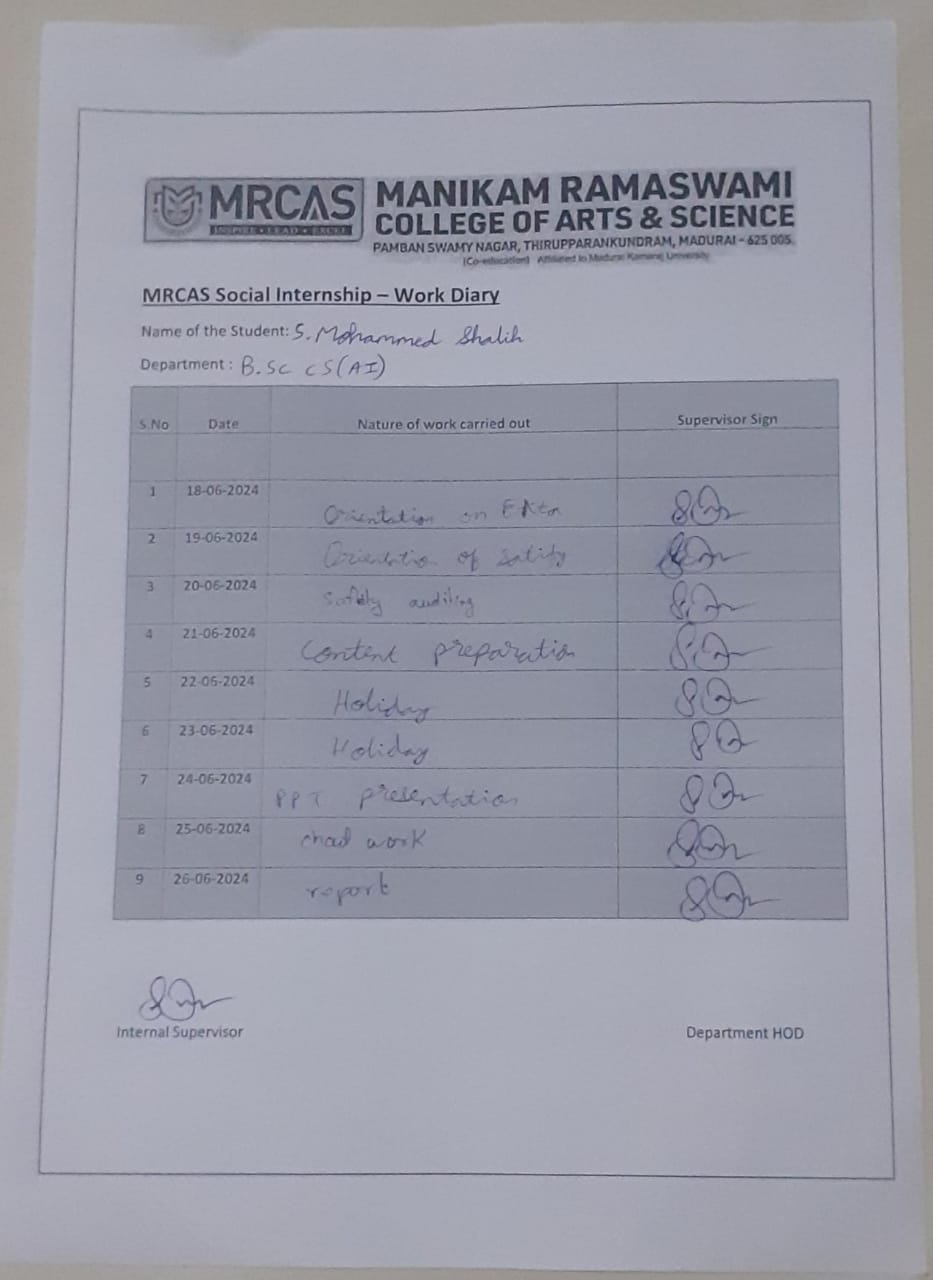 MRCAS
INSPIRE • LEAD • EXCEL
MANIKAM RAMASWAMI
COLLEGE OF ARTS & SCIENCE
PAMBAN SWAMY NAGAR, THIRUPPARANKUNDRAM, MADURAI - 625 005.
(Co-education) Affiliated to Madurai Kamaraj University
MRCAS Social Internship – Work Diary
Name of the Student: S. Mohammed Shalih
Department : B.Sc CS(AI)
S.No Date Nature of work carried out Supervisor Sign
1 18-06-2024 Orientation on
2 19-06-2024 Orientation of
3 20-06-2024 auditing
4 21-06-2024 Content preparation
5 22-06-2024 Holiday
6 23-06-2024 Holiday
7 24-06-2024 PPT presentation
8 25-06-2024 work
9 26-06-2024 report
Internal Supervisor Department HOD